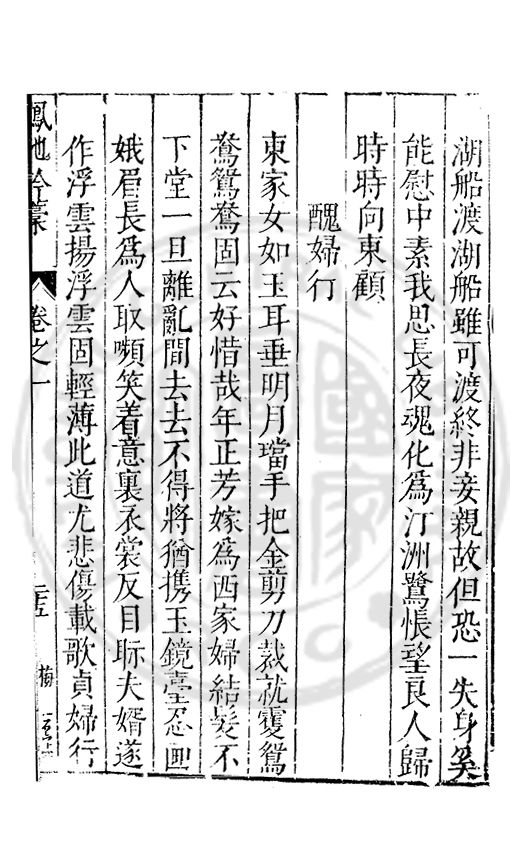 湖船渡湖船雖可渡終非妾親故但恐一失身奚
能慰中素我思長夜魂化爲汀洲鷺悵望良人歸
時時向東顧
醜婦行
東家女如玉耳垂明月璫手把金剪刀裁就雙鴛
鴦鴛鴦固云好惜哉年正芳嫁爲西家婦結髮不
下堂一旦離亂間去去不得將猶携玉鏡臺忍画
娥眉長爲人取嚬笑着意裏衣裳反目眎夫婿遂
作浮雲揚浮雲固輕薄此道尤悲傷載歌貞婦行
鳳池吟藁 卷之一